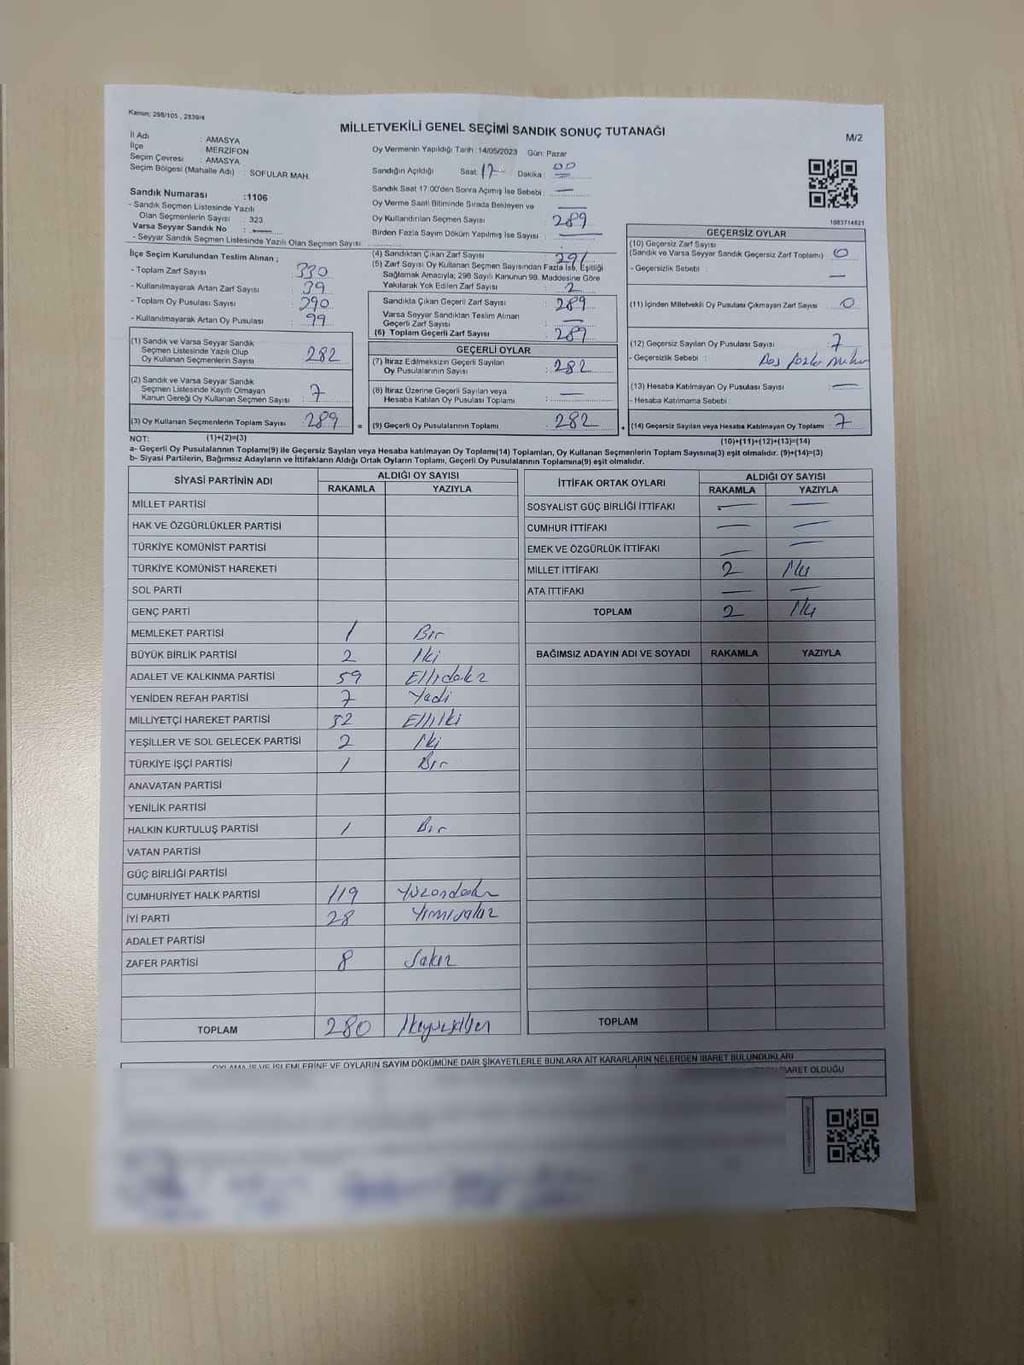 Kanun: 298/105 , 2839/4
MİLLETVEKİLİ GENEL SEÇİMİ SANDIK SONUÇ TUTANAĞI
M/2
İl Adı : AMASYA
İlçe : MERZİFON
Seçim Çevresi : AMASYA
Seçim Bölgesi (Mahalle Adı) : SOFULAR MAH.
Sandık Numarası :1106
- Sandık Seçmen Listesinde Yazılı
Olan Seçmenlerin Sayısı : 323
Varsa Seyyar Sandık No :
- Seyyar Sandık Seçmen Listesinde Yazılı Olan Seçmen Sayısı :
Oy Vermenin Yapıldığı Tarih :14/05/2023 Gün: Pazar
Sandığın Açıldığı Saat : 17 Dakika : 00
Sandık Saat 17.00'den Sonra Açılmış İse Sebebi : —
Oy Verme Saati Bitiminde Sırada Bekleyen ve —
Oy Kullandırılan Seçmen Sayısı : 289
Birden Fazla Sayım Döküm Yapılmış İse Sayısı : —
1083714821
İlçe Seçim Kurulundan Teslim Alınan ;
- Toplam Zarf Sayısı : 330
- Kullanılmayarak Artan Zarf Sayısı : 39
- Toplam Oy Pusulası Sayısı : 290
- Kullanılmayarak Artan Oy Pusulası : 99
(1) Sandık ve Varsa Seyyar Sandık
Seçmen Listesinde Yazılı Olup
Oy Kullanan Seçmenlerin Sayısı : 282
(2) Sandık ve Varsa Seyyar Sandık
Seçmen Listesinde Kayıtlı Olmayan
Kanun Gereği Oy Kullanan Seçmen Sayısı : 7
(3) Oy Kullanan Seçmenlerin Toplam Sayısı : 289
(4) Sandıktan Çıkan Zarf Sayısı : 291
(5) Zarf Sayısı Oy Kullanan Seçmen Sayısından Fazla İse, Eşitliği
Sağlamak Amacıyla; 298 Sayılı Kanunun 98. Maddesine Göre
Yakılarak Yok Edilen Zarf Sayısı : 2
Sandıkla Çıkan Geçerli Zarf Sayısı : 289
Varsa Seyyar Sandıktan Teslim Alınan
Geçerli Zarf Sayısı : —
(6) Toplam Geçerli Zarf Sayısı : 289
GEÇERLİ OYLAR
(7) İtiraz Edilmeksizin Geçerli Sayılan
Oy Pusulalarının Sayısı : 282
(8) İtiraz Üzerine Geçerli Sayılan veya
Hesaba Katılan Oy Pusulası Toplamı : —
= (9) Geçerli Oy Pusulalarının Toplamı : 282
GEÇERSİZ OYLAR
(10) Geçersiz Zarf Sayısı
(Sandık ve Varsa Seyyar Sandık Geçersiz Zarf Toplamı) : 0
- Geçersizlik Sebebi : —
(11) İçinden Milletvekili Oy Pusulası Çıkmayan Zarf Sayısı : 0
(12) Geçersiz Sayılan Oy Pusulası Sayısı : 7
- Geçersizlik Sebebi : fazla mühür
(13) Hesaba Katılmayan Oy Pusulası Sayısı : —
- Hesaba Katılmama Sebebi :
+ (14) Geçersiz Sayılan veya Hesaba Katılmayan Oy Toplamı : 7
NOT: (1)+(2)=(3) (10)+(11)+(12)+(13)=(14)
a- Geçerli Oy Pusulalarının Toplamı(9) ile Geçersiz Sayılan veya Hesaba katılmayan Oy Toplamı(14) Toplamları, Oy Kullanan Seçmenlerin Toplam Sayısına(3) eşit olmalıdır. (9)+(14)=(3)
b- Siyasi Partilerin, Bağımsız Adayların ve İttifakların Aldığı Ortak Oyların Toplamı, Geçerli Oy Pusulalarının Toplamına(9) eşit olmalıdır.
SİYASİ PARTİNİN ADI ALDIĞI OY SAYISI
RAKAMLA YAZIYLA
MİLLET PARTİSİ
HAK VE ÖZGÜRLÜKLER PARTİSİ
TÜRKİYE KOMÜNİST PARTİSİ
TÜRKİYE KOMÜNİST HAREKETİ
SOL PARTİ
GENÇ PARTİ
MEMLEKET PARTİSİ 1 Bir
BÜYÜK BİRLİK PARTİSİ 2 İki
ADALET VE KALKINMA PARTİSİ 59 Ellidokuz
YENİDEN REFAH PARTİSİ 7 Yedi
MİLLİYETÇİ HAREKET PARTİSİ 52 Elliiki
YEŞİLLER VE SOL GELECEK PARTİSİ 2 İki
TÜRKİYE İŞÇİ PARTİSİ 1 Bir
ANAVATAN PARTİSİ
YENİLİK PARTİSİ
HALKIN KURTULUŞ PARTİSİ 1 Bir
VATAN PARTİSİ
GÜÇ BİRLİĞİ PARTİSİ
CUMHURİYET HALK PARTİSİ 119 Yüzondokuz
İYİ PARTİ 28 Yirmisekiz
ADALET PARTİSİ
ZAFER PARTİSİ 8 Sekiz
TOPLAM 280 İkiyüzseksen
İTTİFAK ORTAK OYLARI ALDIĞI OY SAYISI
RAKAMLA YAZIYLA
SOSYALİST GÜÇ BİRLİĞİ İTTİFAKI — —
CUMHUR İTTİFAKI — —
EMEK VE ÖZGÜRLÜK İTTİFAKI — —
MİLLET İTTİFAKI 2 İki
ATA İTTİFAKI — —
TOPLAM 2 İki
BAĞIMSIZ ADAYIN ADI VE SOYADI RAKAMLA YAZIYLA
TOPLAM
OYLAMA İŞ VE İŞLEMLERİNE VE OYLARIN SAYIM DÖKÜMÜNE DAİR ŞİKAYETLERLE BUNLARA AİT KARARLARIN NELERDEN İBARET BULUNDUKLARI
İBARET OLDUĞU